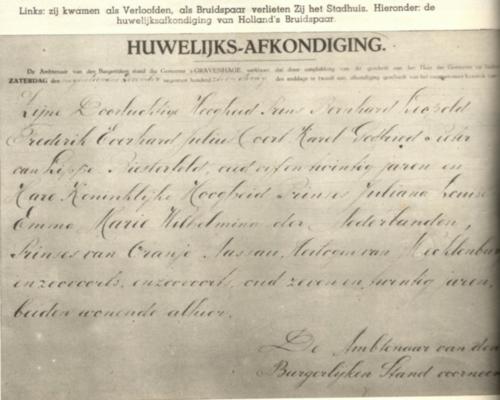 Links: zij kwamen als Verloofden, als Bruidspaar verlieten Zij het Stadhuis. Hieronder: de
huwelijksafkondiging van Holland's Bruidspaar.
HUWELIJKS-AFKONDIGING.
De Ambtenaar van den Burgerlijken stand der Gemeente 's GRAVENHAGE, verklaart dat door aanplakking van de geschrift aan het Huis der Gemeente op heden
ZATERDAG den november negentien honderd des middags te twaalf ure, afkondiging geschiedt van het voorgenomen huwelijk van
Zijne Doorluchtige Hoogheid Prins Bernhard Leopold
Frederik Everhard Julius Coert Karel Godfried Pieter
van Lippe Biesterfeld, oud vijf en twintig jaren en
Hare Koninklijke Hoogheid Prinses Juliana Louise
Emma Marie Wilhelmina der Nederlanden,
Prinses van Oranje Nassau, Hertogin van Mecklenburg
enzoovoorts, enzoovoorts, oud zeven en twintig jaren,
beiden wonende alhier.
De Ambtenaar van den
Burgerlijken Stand voornoemd